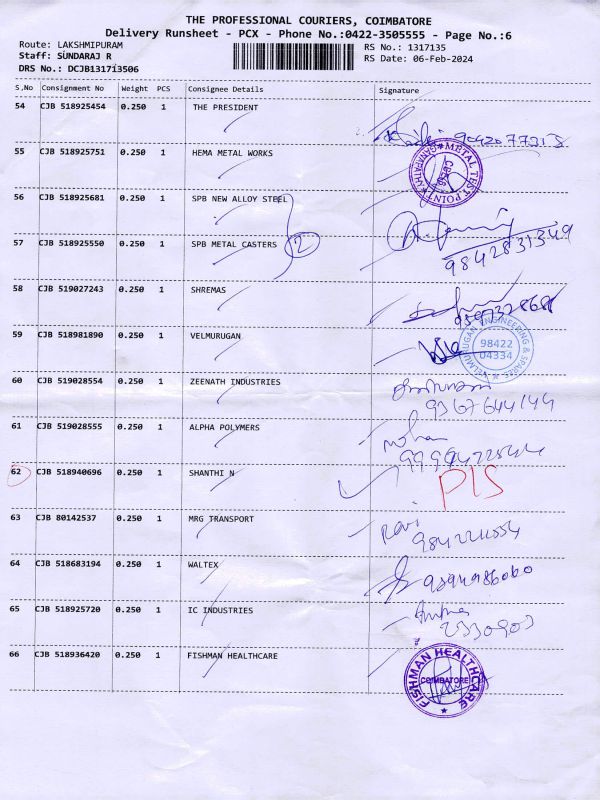 THE PROFESSIONAL COURIERS, COIMBATORE
Delivery Runsheet - PCX - Phone No.:0422-3505555 - Page No.:6
Route: LAKSHMIPURAM RS No.: 1317135
Staff: SUNDARAJ R RS Date: 06-Feb-2024
DRS No.: DCJB131713506
S,No Consignment No Weight PCS Consignee Details Signature
54 CJB 518925454 0.250 1 THE PRESIDENT
55 CJB 518925751 0.250 1 HEMA METAL WORKS METAL TEST POINT
56 CJB 518925681 0.250 1 SPB NEW ALLOY STEEL
57 CJB 518925550 0.250 1 SPB METAL CASTERS 2 9842831349
58 CJB 519027243 0.250 1 SHREMAS
59 CJB 518981890 0.250 1 VELMURUGAN VELMURUGAN ENGINEERING & SPARES 98422 04334
60 CJB 519028554 0.250 1 ZEENATH INDUSTRIES 9367644144
61 CJB 519028555 0.250 1 ALPHA POLYMERS mohan
62 CJB 518940696 0.250 1 SHANTHI N PIS
63 CJB 80142537 0.250 1 MRG TRANSPORT Ravi
64 CJB 518683194 0.250 1 WALTEX
65 CJB 518925720 0.250 1 IC INDUSTRIES
66 CJB 518936420 0.250 1 FISHMAN HEALTHCARE FISHMAN HEALTHCARE COIMBATORE